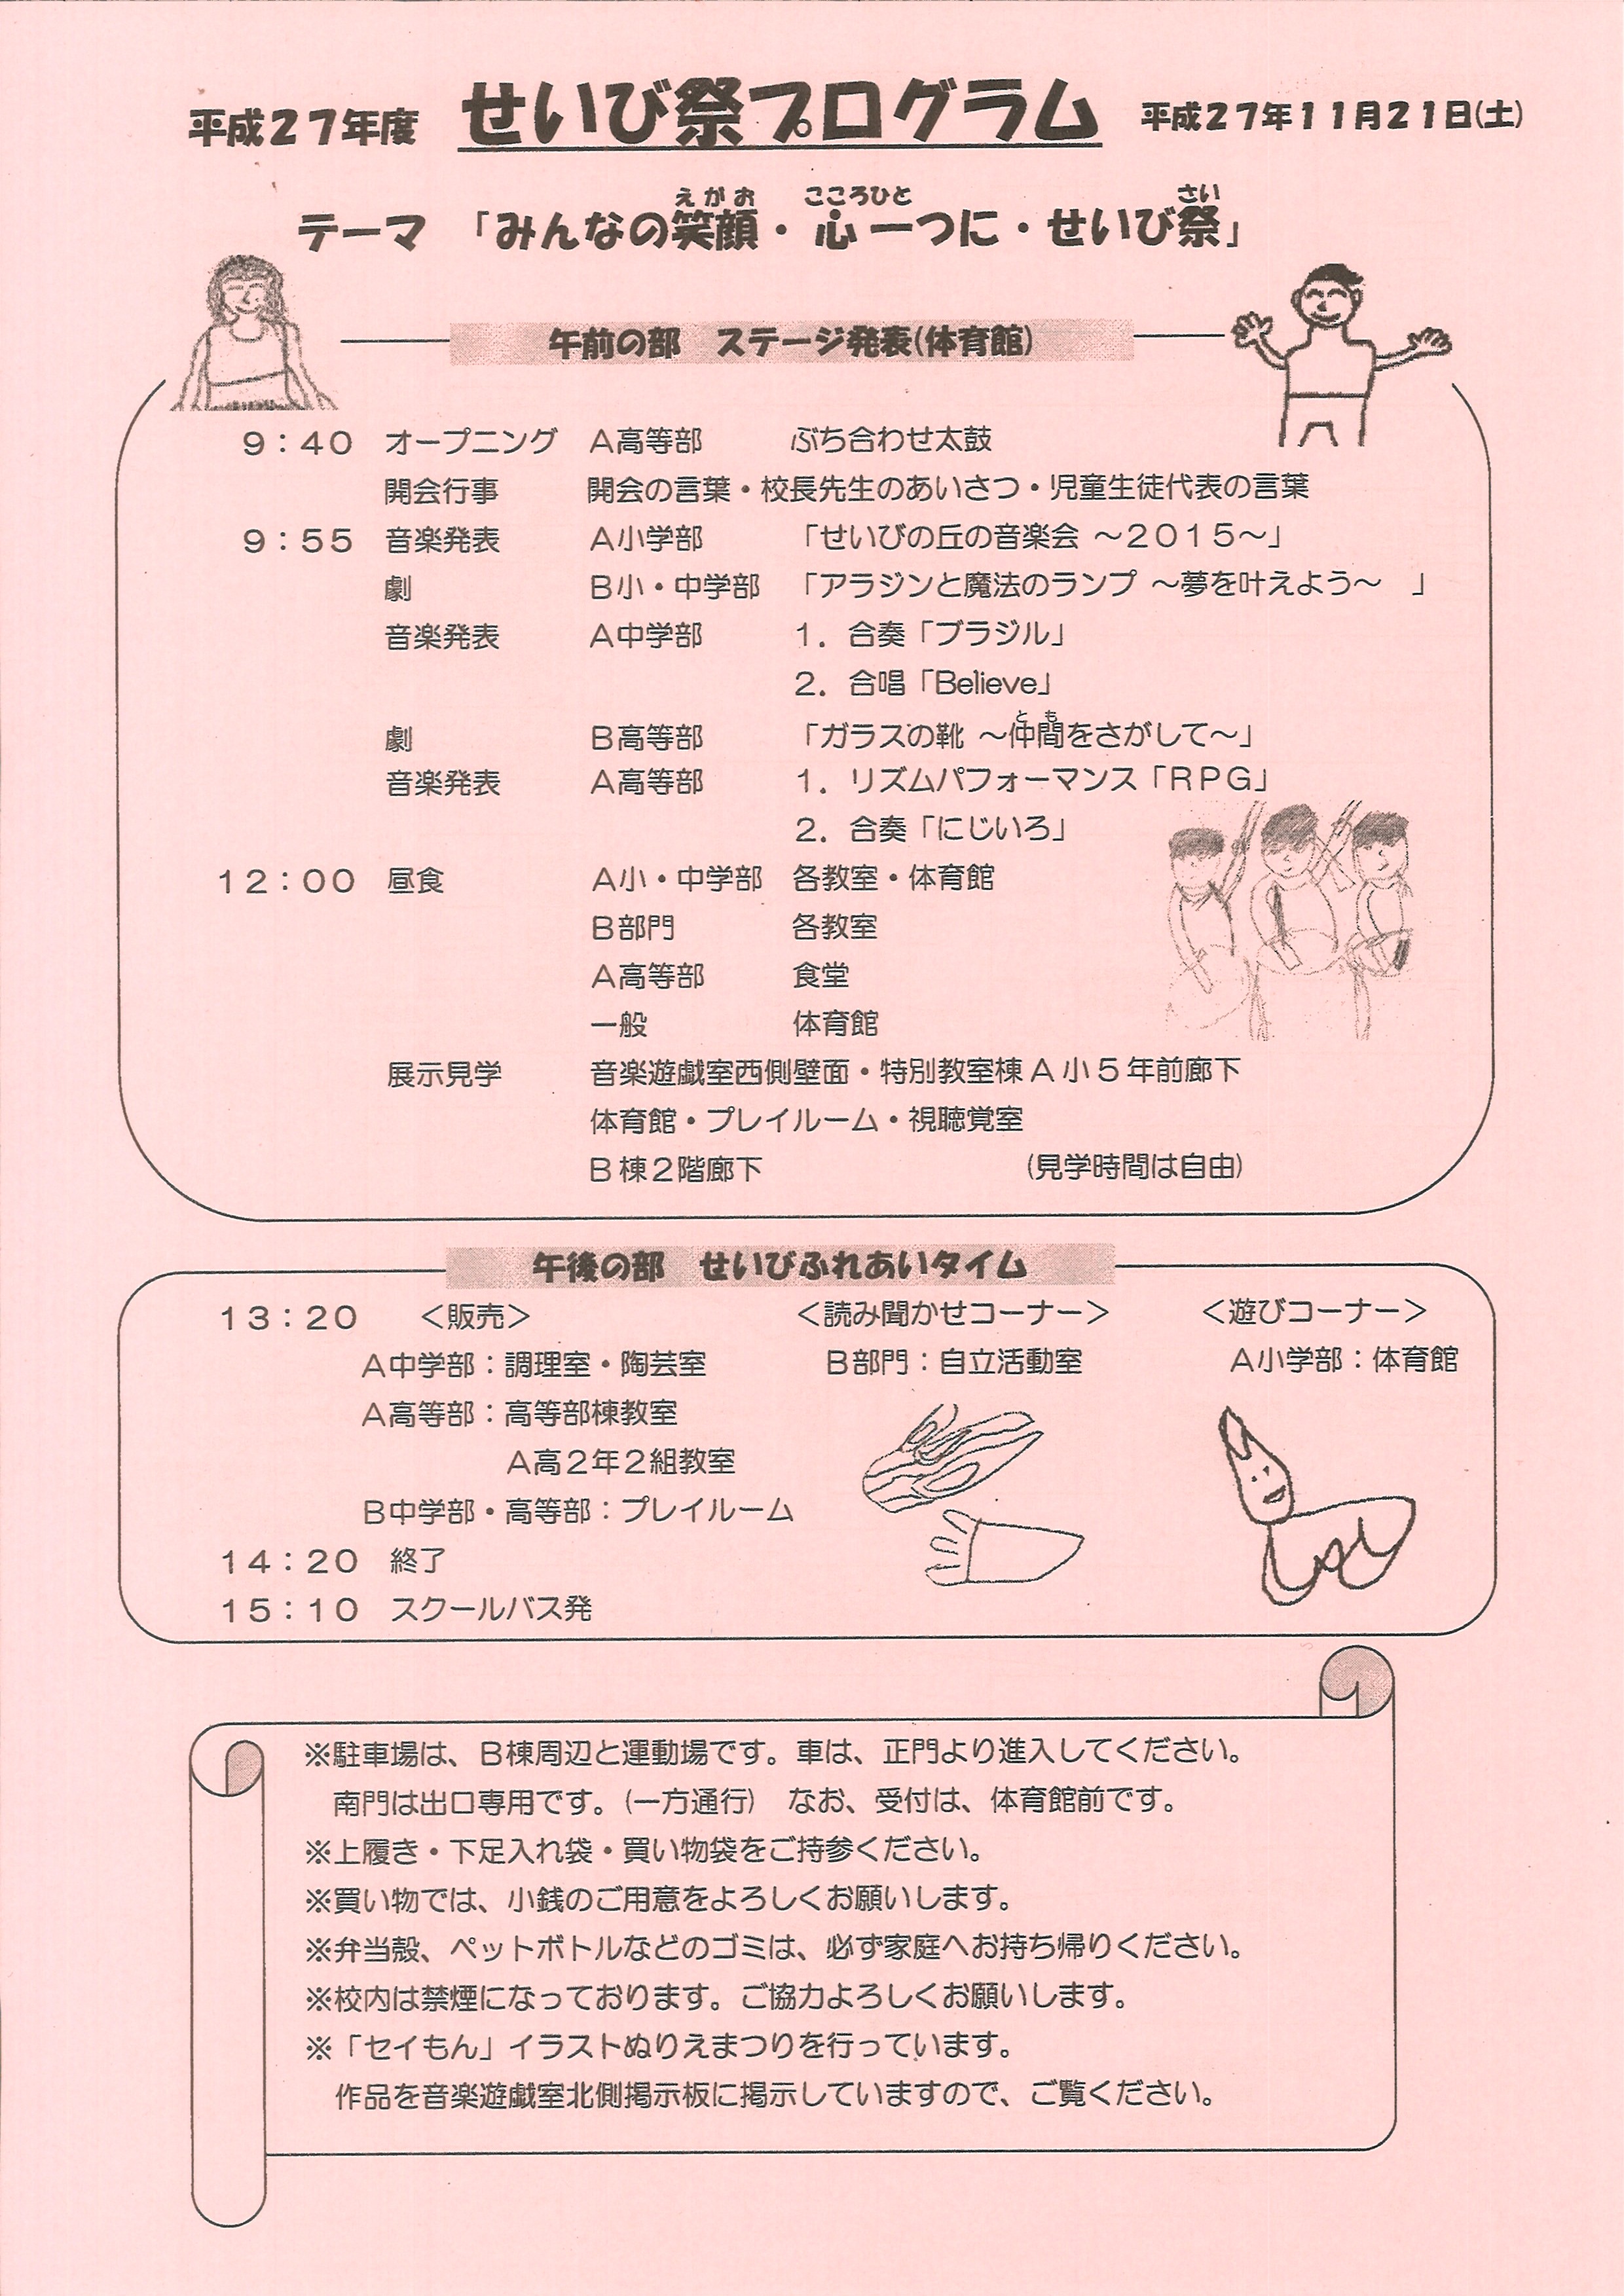 平成２７年度　せいび祭プログラム　平成２７年１１月２１日(土)
テーマ　「みんなの笑顔・心一つに・せいび祭」
えがお　こころひと　さい
午前の部　ステージ発表(体育館)
９：４０　オープニング　Ａ高等部　ぶち合わせ太鼓
開会行事　開会の言葉・校長先生のあいさつ・児童生徒代表の言葉
９：５５　音楽発表　Ａ小学部　「せいびの丘の音楽会 ～２０１５～」
劇　Ｂ小・中学部　「アラジンと魔法のランプ ～夢を叶えよう～　」
音楽発表　Ａ中学部　１．合奏「ブラジル」
２．合唱「Believe」
劇　Ｂ高等部　「ガラスの靴 ～仲間をさがして～」
とも
音楽発表　Ａ高等部　１．リズムパフォーマンス「ＲＰＧ」
２．合奏「にじいろ」
１２：００　昼食　Ａ小・中学部　各教室・体育館
Ｂ部門　各教室
Ａ高等部　食堂
一般　体育館
展示見学　音楽遊戯室西側壁面・特別教室棟Ａ小５年前廊下
体育館・プレイルーム・視聴覚室
Ｂ棟２階廊下　(見学時間は自由)
午後の部　せいびふれあいタイム
１３：２０　＜販売＞　＜読み聞かせコーナー＞　＜遊びコーナー＞
Ａ中学部：調理室・陶芸室　Ｂ部門：自立活動室　Ａ小学部：体育館
Ａ高等部：高等部棟教室
Ａ高２年２組教室
Ｂ中学部・高等部：プレイルーム
１４：２０　終了
１５：１０　スクールバス発
※駐車場は、Ｂ棟周辺と運動場です。車は、正門より進入してください。
南門は出口専用です。(一方通行)　なお、受付は、体育館前です。
※上履き・下足入れ袋・買い物袋をご持参ください。
※買い物では、小銭のご用意をよろしくお願いします。
※弁当殻、ペットボトルなどのゴミは、必ず家庭へお持ち帰りください。
※校内は禁煙になっております。ご協力よろしくお願いします。
※「セイもん」イラストぬりえまつりを行っています。
作品を音楽遊戯室北側掲示板に掲示していますので、ご覧ください。